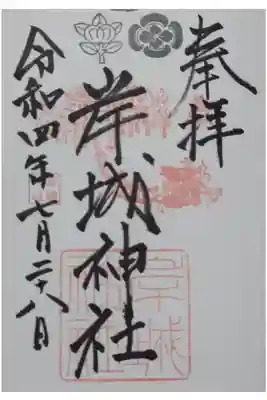 奉拝
岸城神社
令和四年七月二十八日
岸城神社